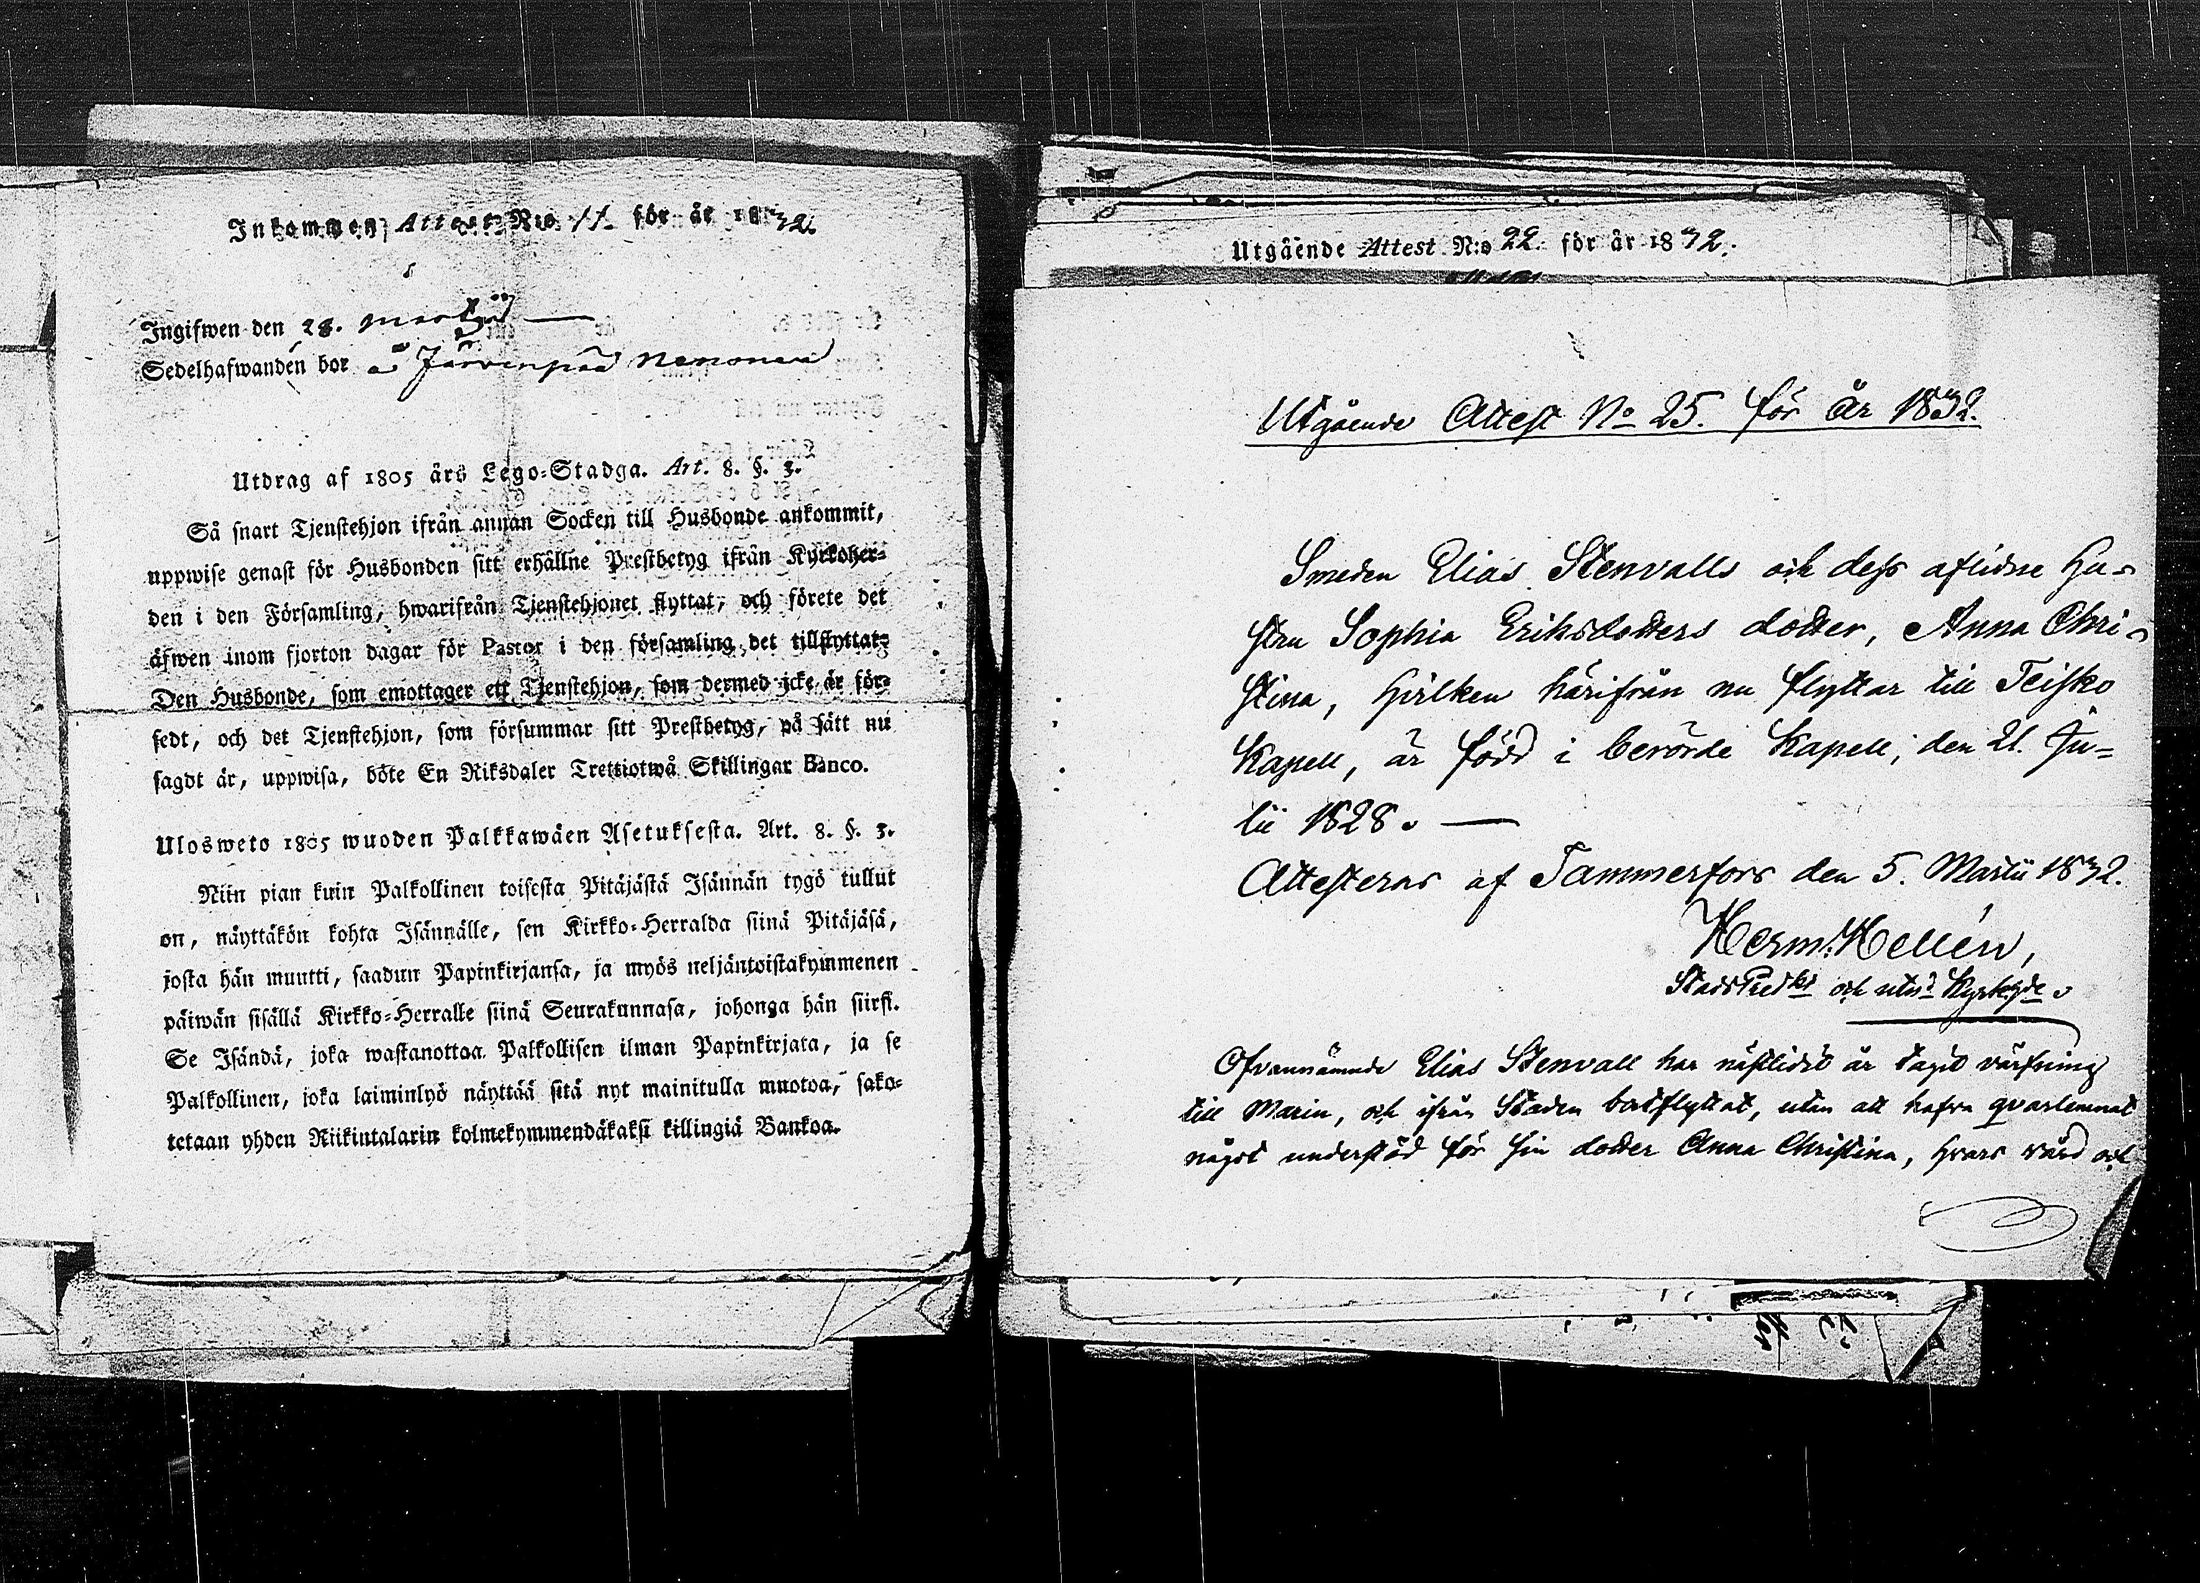 Inkommen Attest N:o 11. för år 1832.
Ingifwen den 28. Martii
Sedelhafwanden bor å Järvenpää Nenonen
Utdrag af 1805 års Lego-Stadga. Art. 8. §. 3.
Så snart Tjenstehjon ifrån annan Socken till Husbonde ankommit,
uppwise genast för Husbonden sitt erhållne Prestbetyg ifrån Kyrkoher-
den i den Församling, hwarifrån Tjenstehjonet flyttat, och förete det
äfwen inom fjorton dagar för Pastor i den församling det tillflyttat.
Den Husbonde, som emottager ett Tjenstehjon, som dermed icke är för-
sedt, och det Tjenstehjon, som försummar sitt Prestbetyg, på sätt nu
sagdt är, uppwisa, böte En Riksdaler Trettiotwå Skillingar Banco.
Ulosweto 1805 wuoden Palkkawäen Asetuksesta. Art. 8. §. 3.
Niin pian kuin Palkollinen toisesta Pitäjästä Isännän tygö tullut
on, näyttäkön kohta Isännälle, sen Kirkko-Herralda siinä Pitäjäsä,
josta hän muutti, saadun Papinkirjansa, ja myös neljäntoistakymmenen
päiwän sisällä Kirkko-Herralle siinä Seurakunnasa, johonga hän siirsi.
Se Isändä, joka wastanottaa Palkollisen ilman Papinkirjata, ja se
Palkollinen, joka laiminlyö näyttää sitä nyt mainitulla muotoa, sako-
tetaan yhden Riikintalarin kolmekymmendäkaksi killingiä Bankoa.
Utgående Attest N:o 22. för år 1832.
Utgående Attest No 25. för år 1832.
Smeden Elias Stenvalls och dess aflidne Hu-
stru Sophia Eriksdotters dotter, Anna Chri-
stina, hvilken härifrån nu flyttar till Teisko
Kapell, är född i berörde Kapell, den 21. Ju-
lii 1828. —
Attesteras af Tammerfors den 5. Martii 1832.
Herm. Hellén,
StadsPredkt och utn? Kyrkhde.
Ofvannämnde Elias Stenvall har nästlidit år tagit värfning
till Marin, och ifrån Staden bortflyttat, utan att hafva qvarlemnat
något understöd för sin dotter Anna Christina, hvars vård och